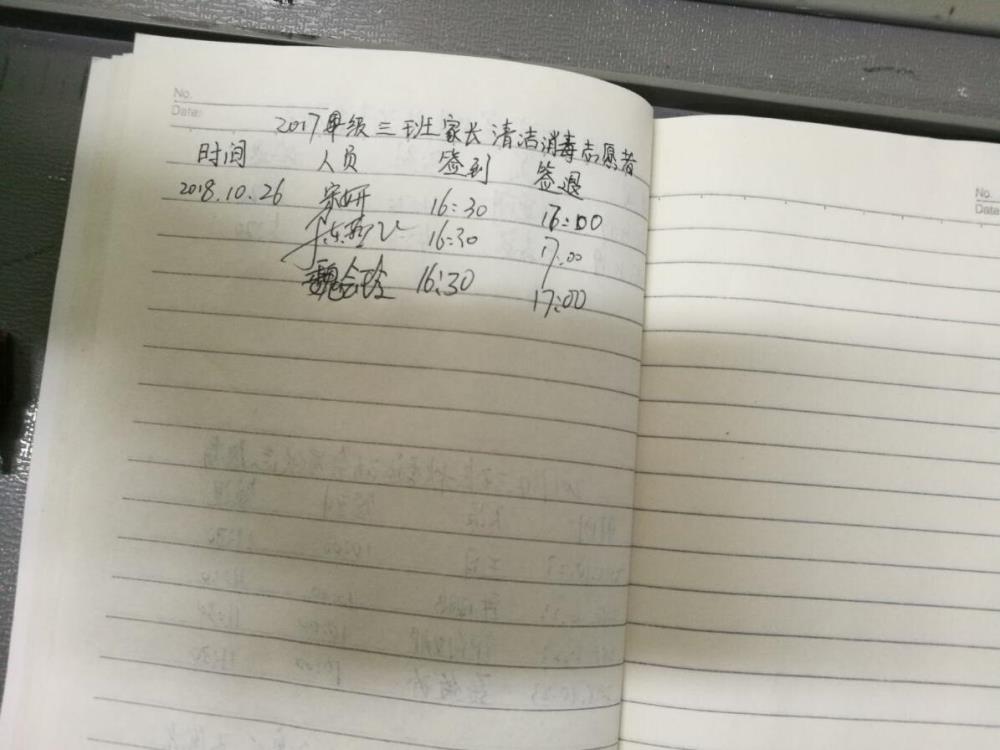 No.
Date:
2017年级三班家长清洁消毒志愿者
时间 人员 签到 签退
2018.10.26 宋妍 16:30 17:00
16:30 17:00
魏会玲 16:30 17:00
No.
Date: